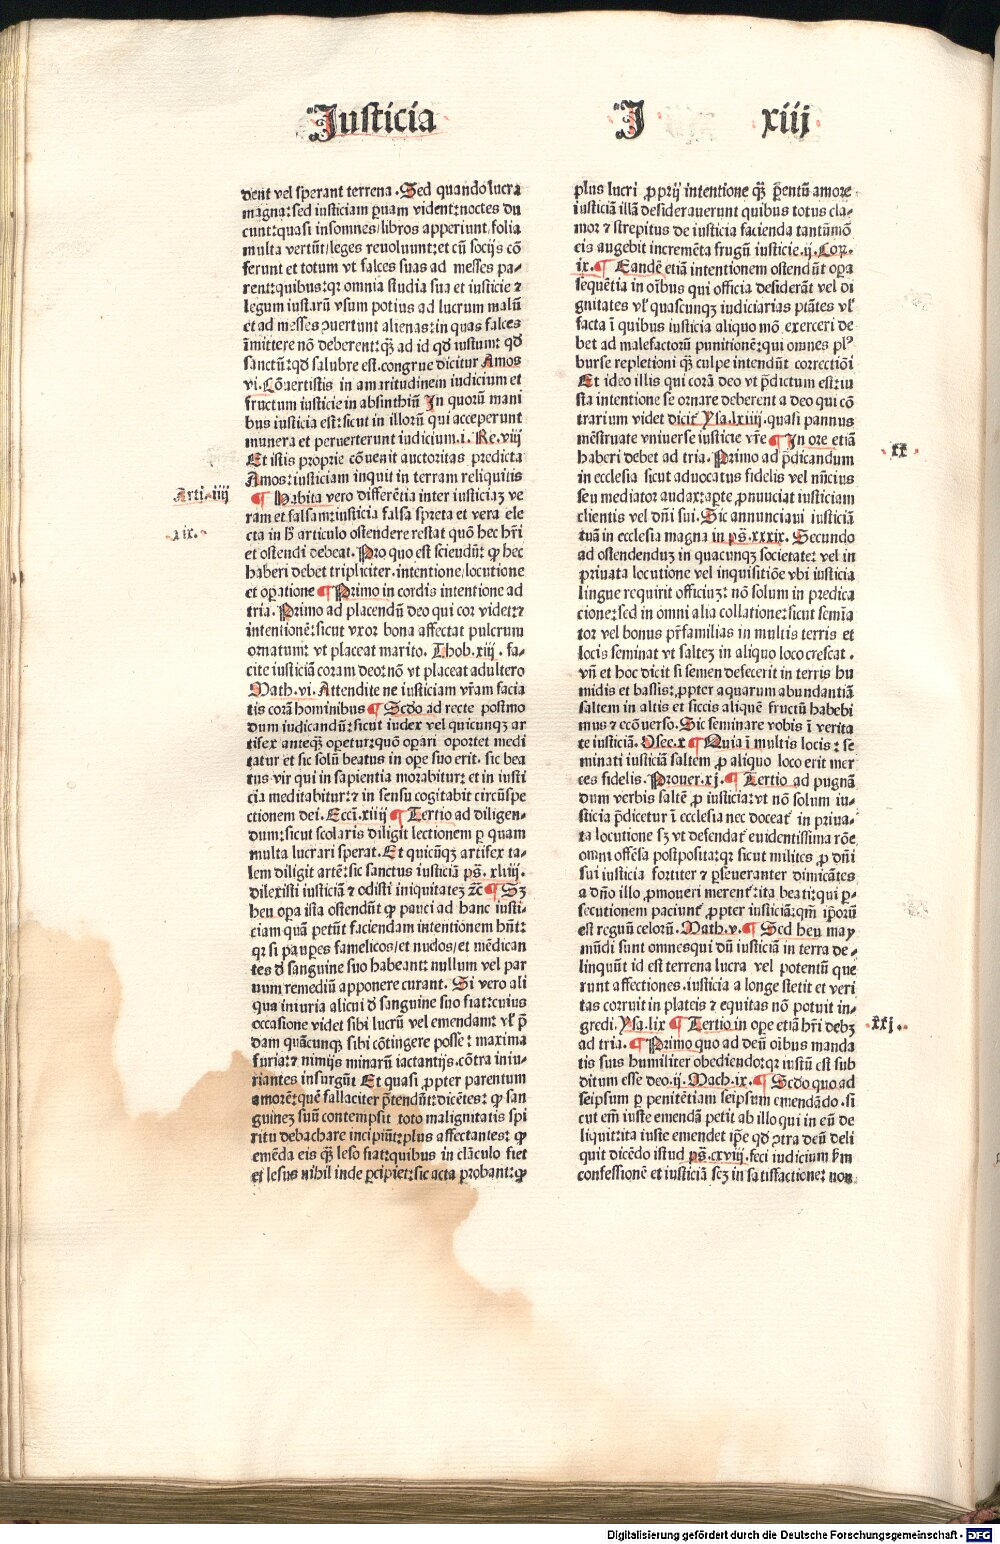 Justicia J xiij
dent vel sperant terrena. Sed quando lucra
magna: sed iusticiam puam vident: noctes du
cunt: quasi insomnes/ libros apperiunt/ folia
multa vertūt/ leges reuoluunt: et cū socijs cō
ferunt et totum vt falces suas ad messes pa-
rent: quibus: qr omnia studia sua et iusticie ⁊
legum iustarū vsum potius ad lucrum malū
et ad messes ɔuertunt alienas: in quas falces
īmittere nō deberent: qȝ ad id qd iustum: qd
sanctū: qd salubre est. congrue dicitur Amos
vi. Cōuertistis in amaritudinem iudicium et
fructum iusticie in absinthiū In quorū mani
bus iusticia est: sicut in illorū qui acceperunt
munera et peruerterunt iudicium. i. Re. viij
Et istis proprie cōuenit auctoritas predicta
Amos: iusticiam inquit in terram reliquitis
Arti. iiij ¶ Habita vero differētia inter iusticiaȝ ve
ram et falsam: iusticia falsa spreta et vera ele
xix. cta in h articulo ostendere restat quō hec hr̄i
et ostendi debeat. Pro quo est sciendū: ꝙ hec
haberi debet tripliciter. intentione/ locutione
et oꝑatione ¶ Primo in cordis intentione ad
tria. Primo ad placendū deo qui cor videt: ⁊
intentionē: sicut vxor bona affectat pulcrum
ornatum: vt placeat marito. Thob. xiij. fa-
cite iusticiā coram deo: nō vt placeat adultero
Math. vi. Attendite ne iusticiam vr̄am facia
tis corā hominibus ¶ Scdo ad recte postmo
dum iudicandū: sicut iudex vel quicunqȝ ar
tifex anteqȝ oꝑetur: quō oꝑari oportet medi
tatur et sic solū beatus in oꝑe suo erit. sic bea
tus vir qui in sapientia morabitur: et in iusti
cia meditabitur: ⁊ in sensu cogitabit circūspe
ctionem dei. Ecci. xiiij ¶ Tertio ad diligen-
dum: sicut scolaris diligit lectionem ꝑ quam
multa lucrari sperat. Et quicūqȝ artifex ta-
lem diligit artē: sic sanctus iusticiā ps̄. xliiij.
dilexisti iusticiā ⁊ odisti iniquitateȝ ⁊c̄ ¶ Sȝ
heu oꝑa ista ostendūt ꝙ pauci ad hanc iusti-
ciam quā petūt faciendam intentionem hn̄t:
qr si pauꝑes famelicos/ et nudos/ et mēdican
tes d̄ sanguine suo habeant: nullum vel par
uum remediū apponere curant. Si vero ali
qua iniuria alicui d̄ sanguine suo fiat: cuius
occasione videt sibi lucrū vel emendam: vl' p̄
dam quācunqȝ sibi cōtingere posse: maxima
furia: ⁊ nimijs minarū iactantijs. cōtra iniu-
riantes insurgūt Et quasi ꝓpter parentum
amorē: quē fallaciter p̄tendūt: dicētes: ꝙ san
guineȝ suū contempsit toto malignitatis spi
ritu debachare incipiūt: plus affectantes: ꝙ
emēda eis qȝ leso fiat: quibus in clāculo fiet
et lesus nihil inde ꝑcipiet: sic acta probant: ꝙ
plus lucri ꝓprij intentione qȝ ꝑentū amore
iusticiā illā desiderauerunt quibus totus cla-
mor ⁊ strepitus de iusticia facienda tantūmō
eis augebit incremēta frugū iusticie. ij. Cor.
ix. ¶ Eandē etiā intentionem ostendūt oꝑa
sequētia in oībus qui officia desiderāt vel di
gnitates vl' quascunqȝ iudiciarias ptātes vl'
facta ī quibus iusticia aliquo mō. exerceri de
bet ad malefactorū punitionē: qui omnes pl'
burse repletioni qȝ culpe intendūt correctiōi
Et ideo illis qui corā deo vt p̄dictum est: iu
sta intentione se ornare deberent a deo qui cō
trarium videt dicit Ysa. lxiiij. quasi pannus
mēstruate vniuerse iusticie vr̄e ¶ In ore etiā
xx haberi debet ad tria. Primo ad p̄dicandum
in ecclesia sicut aduocatus fidelis vel nūcius
seu mediator audax: apte ꝓnuuciat iusticiam
clientis vel dn̄i sui. Sic annunciaui iusticiā
tuā in ecclesia magna in ps̄. xxxix. Secundo
ad ostendenduȝ in quacunqȝ societate: vel in
priuata locutione vel inquisitiōe vbi iusticia
lingue requirit officiuȝ: nō solum in predica
cione: sed in omni alia collatione: sicut semīa
tor vel bonus pr̄familias in multis terris et
locis seminat vt salteȝ in aliquo loco crescat.
vn̄ et hoc dicit si semen defecerit in terris hu
midis et bassis: ꝓpter aquarum abundantiā
saltem in altis et siccis aliquē fructū habebi
mus ⁊ ecōuerso. Sic seminare vobis ī verita
te iusticiā. Osee. x ¶ Quia ī multis locis: se
minati iusticiā saltem ꝓ aliquo loco erit mer
ces fidelis. Prouer. xj. ¶ Tertio ad pugnā
dum verbis saltē ꝓ iusticia: vt nō solum iu-
sticia p̄dicetur ī ecclesia nec doceat in priua-
ta locutione sȝ vt defendat euidentissima rōe
omni offēsa postposita: qr sicut milites ꝓ dn̄i
sui iusticia fortiter ⁊ ꝑseueranter dimicātes
a dn̄o illo ꝓmoueri merent: ita beati: qui ꝑ-
secutionem paciunt ꝓpter iusticiā: qm̄ ip̄orū
est regnū celorū. Math. v. ¶ Sed heu may
mūdi sunt omnes qui dū iusticiā in terra de-
linquūt id est terrena lucra vel potentū que
runt affectiones. iusticia a longe stetit et veri
tas corruit in plateis ⁊ equitas nō potuit in-
gredi. Ysa. lix ¶ Tertio in oꝑe etiā hr̄i debȝ xxj.
ad tria. ¶ Primo quo ad deū oībus manda
tis suis humiliter obediendo: qr iustū est sub
ditum esse deo. ij. Mach. ix. ¶ Scdo quo ad
seipsum ꝑ penitētiam seipsum emendādo. si
cut em̄ iuste emendā petit ab illo qui in eū de
liquit: ita iuste emendet ip̄e qd ɔtra deū deli
quit dicēdo istud ps̄. cxviij. feci iudicium hm̄
confessionē et iusticiā scȝ in satisfactione: non
Digitalisierung gefördert durch die Deutsche Forschungsgemeinschaft - DFG